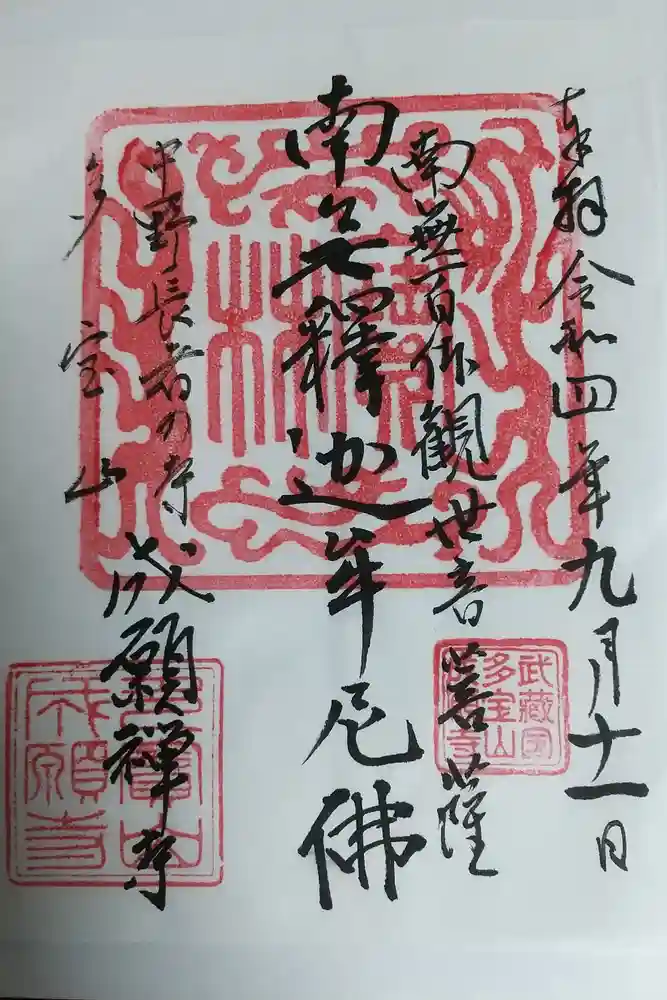 奉拝 令和四年九月十一日
南無百体観世音菩薩
南無釋迦牟尼佛
中野長者の寺
多宝山
成願禅寺
武蔵国
多宝山
成願寺
多寶山
成願寺